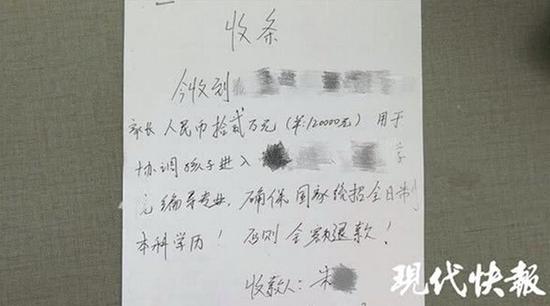 收条
今收到
家长 人民币拾贰万元(￥:120000元) 用于
协调孩子进入 学
院编导专业，确保国家统招全日制
本科学历！否则全额退款！
收款人：朱
现代快报